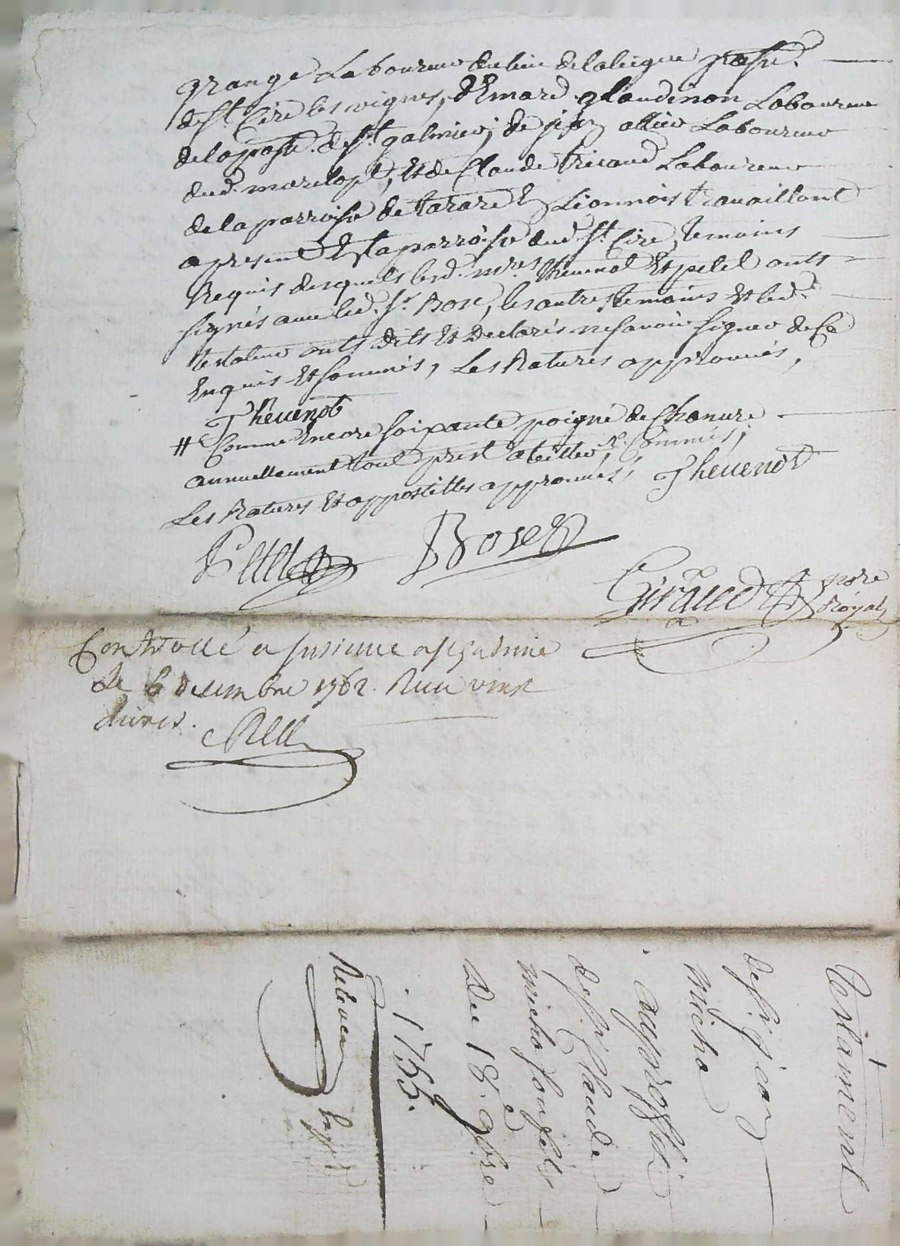 grange Laboureur du lieu de la liegue
de St. Cire les vignes, d'Emard glaudinon Laboureur
de la de St. galmier, de jean Laboureur
dud. , Et de Claude tricaud Laboureur
de la parroisse de tarare En Lionnois travaillant
a present En la parroisse dud. St. Cire, temoins
Requis desquels lesd. thevenot Et petel onts
signés avec led. Sr. Bose, les autres temoins Et led.
testateur onts dits Et Declarés ne savoir signer de Ce
Enquis Et sommés, Les Ratures approuvées,
Thevenot
# Comme Encore soixante poigné de Chanvre
annuellement tout prest a teiller, sommés,
Les Ratures Et appostilles approuvées, Thevenot
Petel Bose
Giraud nore Royal
Controllé a
Le 6 desembre 1762. Receu
livres.
testament
de Sr. jean
micha
au proffit
de Sr. Claude
micha son fils
Du 18. 9bre